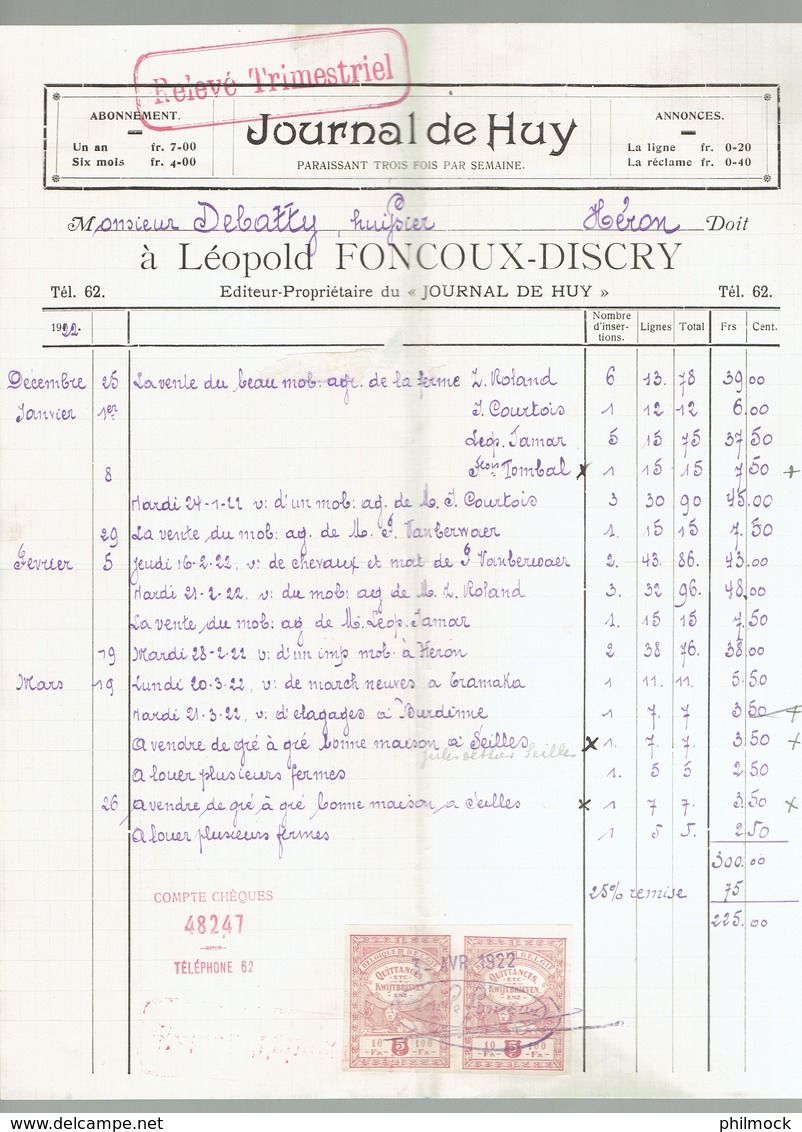 Relevé Trimestriel
ABONNEMENT.
Un an fr. 7-00
Six mois fr. 4-00
Journal de Huy
PARAISSANT TROIS FOIS PAR SEMAINE.
ANNONCES.
La ligne fr. 0-20
La réclame fr. 0-40
Monsieur Debatty, huissier Héron Doit
à Léopold FONCOUX-DISCRY
Tél. 62. Editeur-Propriétaire du « JOURNAL DE HUY » Tél. 62.
1922. Nombre d'inser-tions. Lignes Total Frs Cent.
Décembre 25 La vente du beau mob: agr. de la ferme L. Roland 6 13. 78 39 00
Janvier 1er J. Courtois 1 12 12 6.00
Leop. Jamar 5 15 75 37 50
8 Tombal x 1 15 15 7 50 +
Mardi 24-1-22 v: d'un mob: ag. de M. J. Courtois 3 30 90 45.00
29 La vente du mob: ag. de M. J. Vanberwaer 1. 15 15 7. 50
Février 5 Jeudi 16-2-22, v: de chevaux et mat de J Vanberwaer 2. 43. 86. 43.00
Mardi 21-2-22, v: du mob: ag de M. L. Roland 3. 32 96. 48.00
La vente du mob: ag de M. Leop. Jamar 1. 15 15 7. 50
19 Mardi 28-2-22 v: d'un imp mob. à Héron 2 38 76. 38.00
Mars 19 Lundi 20-3-22, v: de march neuves a Tramaka 1 11. 11. 5.50
Mardi 21-3-22, v: d'elagages à Burdinne 1 7. 7 3 50 +
A vendre de gré à gré bonne maison à Seilles x 1. 7. 7. 3.50 +
Seilles
A louer plusieurs fermes 1. 5 5 2 50
26 A vendre de gré à gré bonne maison a Seilles x 1 7 7. 3.50 x
A louer plusieurs fermes 1 5 5. 2 50
300.00
25% remise 75
225.00
COMPTE CHÈQUES
48247
TÉLÉPHONE 62
BELGIQUE BELGIË BELGIQUE BELGIË
AVR 1922
QUITTANCES, ETC QUITTANCES, ETC
KWIJTBRIEVEN, ENZ KWIJTBRIEVEN, ENZ
10 5 100 10 5 100
FR FR FR FR
philmock